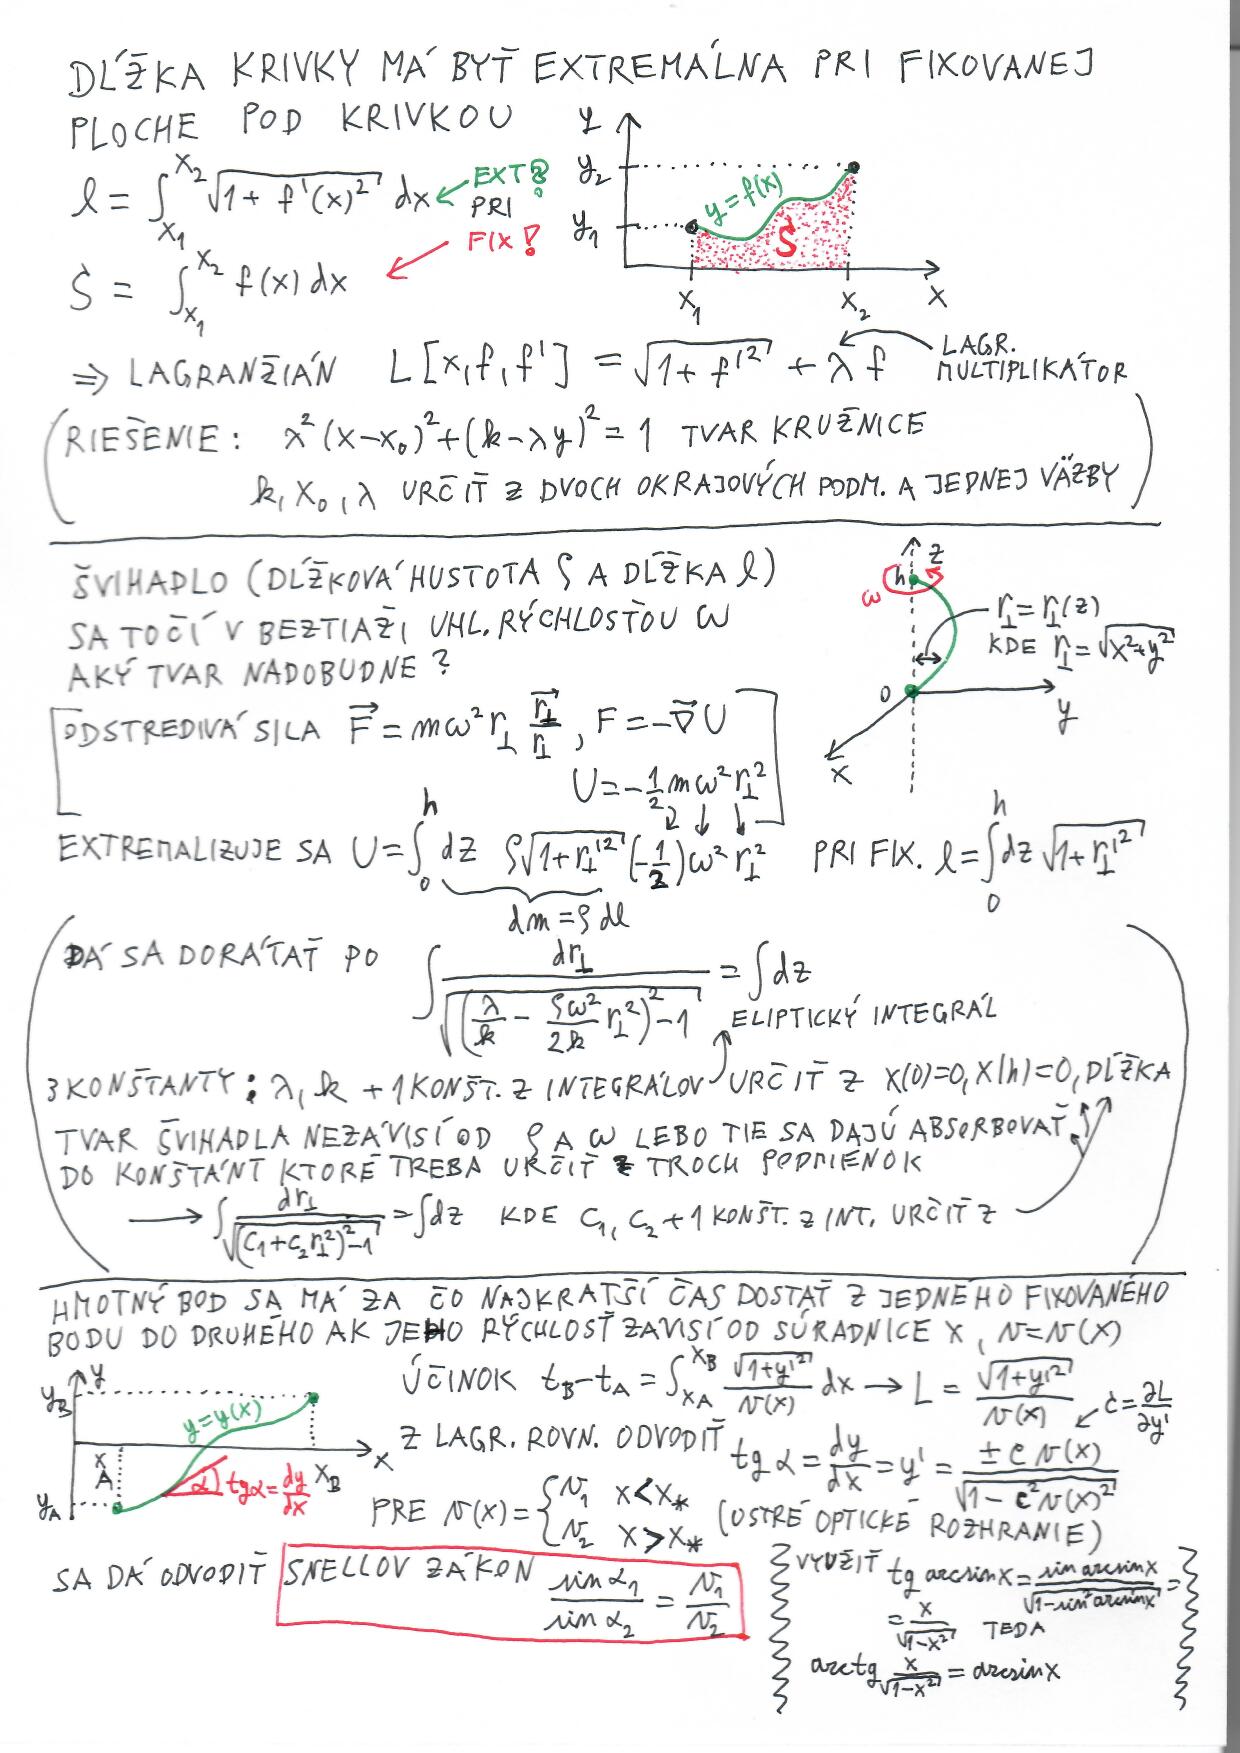 DĹŽKA KRIVKY MÁ BYŤ EXTREMÁLNA PRI FIXOVANEJ
PLOCHE POD KRIVKOU
l = ∫_{x₁}^{x₂} √(1+f'(x)²) dx ← EXT?! PRI
S = ∫_{x₁}^{x₂} f(x) dx ← FIX!
y
y₂
y₁
y=f(x)
S
x₁ x₂ x
⇒ LAGRANŽIÁN L[x,f,f'] = √(1+f'²) + λf
LAGR. MULTIPLIKÁTOR
(RIEŠENIE: λ²(x-x₀)²+(k-λy)²=1 TVAR KRUŽNICE
k, x₀, λ URČIŤ Z DVOCH OKRAJOVÝCH PODM. A JEDNEJ VÄZBY)
ŠVIHADLO (DĹŽKOVÁ HUSTOTA ρ A DĹŽKA l)
SA TOČÍ V BEZTIAŽI UHL. RÝCHLOSŤOU ω
AKÝ TVAR NADOBUDNE?
z
h
ω
r⊥=r⊥(z)
KDE r⊥=√(x²+y²)
0
y
x
[ODSTREDIVÁ SILA F⃗ = mω²r⊥ r⃗⊥/r⊥, F = -∇⃗U
U = -½mω²r⊥²]
EXTREMALIZUJE SA U = ∫₀^h dz ρ√(1+r⊥'²) (-½)ω²r⊥² PRI FIX. l = ∫₀^h dz √(1+r⊥'²)
dm = ρ dl
(DÁ SA DORÁTAŤ PO ∫ dr⊥/√((λ/k - ρω²/2k r⊥²)²-1) = ∫dz
ELIPTICKÝ INTEGRÁL
3 KONŠTANTY: λ, k + 1 KONŠT. Z INTEGRÁLOV URČIŤ Z x(0)=0, x(h)=0, DĹŽKA
TVAR ŠVIHADLA NEZÁVISÍ OD ρ A ω LEBO TIE SA DAJÚ ABSORBOVAŤ
DO KONŠTÁNT KTORÉ TREBA URČIŤ Z TROCH PODMIENOK
→ ∫ dr⊥/√((c₁+c₂r⊥²)²-1) = ∫dz KDE c₁, c₂ + 1 KONŠT. Z INT. URČIŤ Z)
HMOTNÝ BOD SA MÁ ZA ČO NAJKRATŠÍ ČAS DOSTAŤ Z JEDNÉHO FIXOVANÉHO
BODU DO DRUHÉHO AK JEHO RÝCHLOSŤ ZAVISÍ OD SÚRADNICE x, v=v(x)
y
y_B
y=y(x)
x_A
x_B
x
y_A
α
tgα=dy/dx
ÚČINOK t_B-t_A = ∫_{x_A}^{x_B} √(1+y'²)/v(x) dx → L = √(1+y'²)/v(x)
c=∂L/∂y'
Z LAGR. ROVN. ODVODIŤ tg α = dy/dx = y' = ± c v(x)/√(1-c²v(x)²)
PRE v(x) = { v₁ x<x* ; v₂ x>x* (OSTRÉ OPTICKÉ ROZHRANIE)
SA DÁ ODVODIŤ SNELLOV ZÁKON sin α₁/sin α₂ = v₁/v₂
VYUŽIŤ tg arcsin x = sin arcsin x/√(1-sin² arcsin x) =
= x/√(1-x²) TEDA
arctg x/√(1-x²) = arcsin x